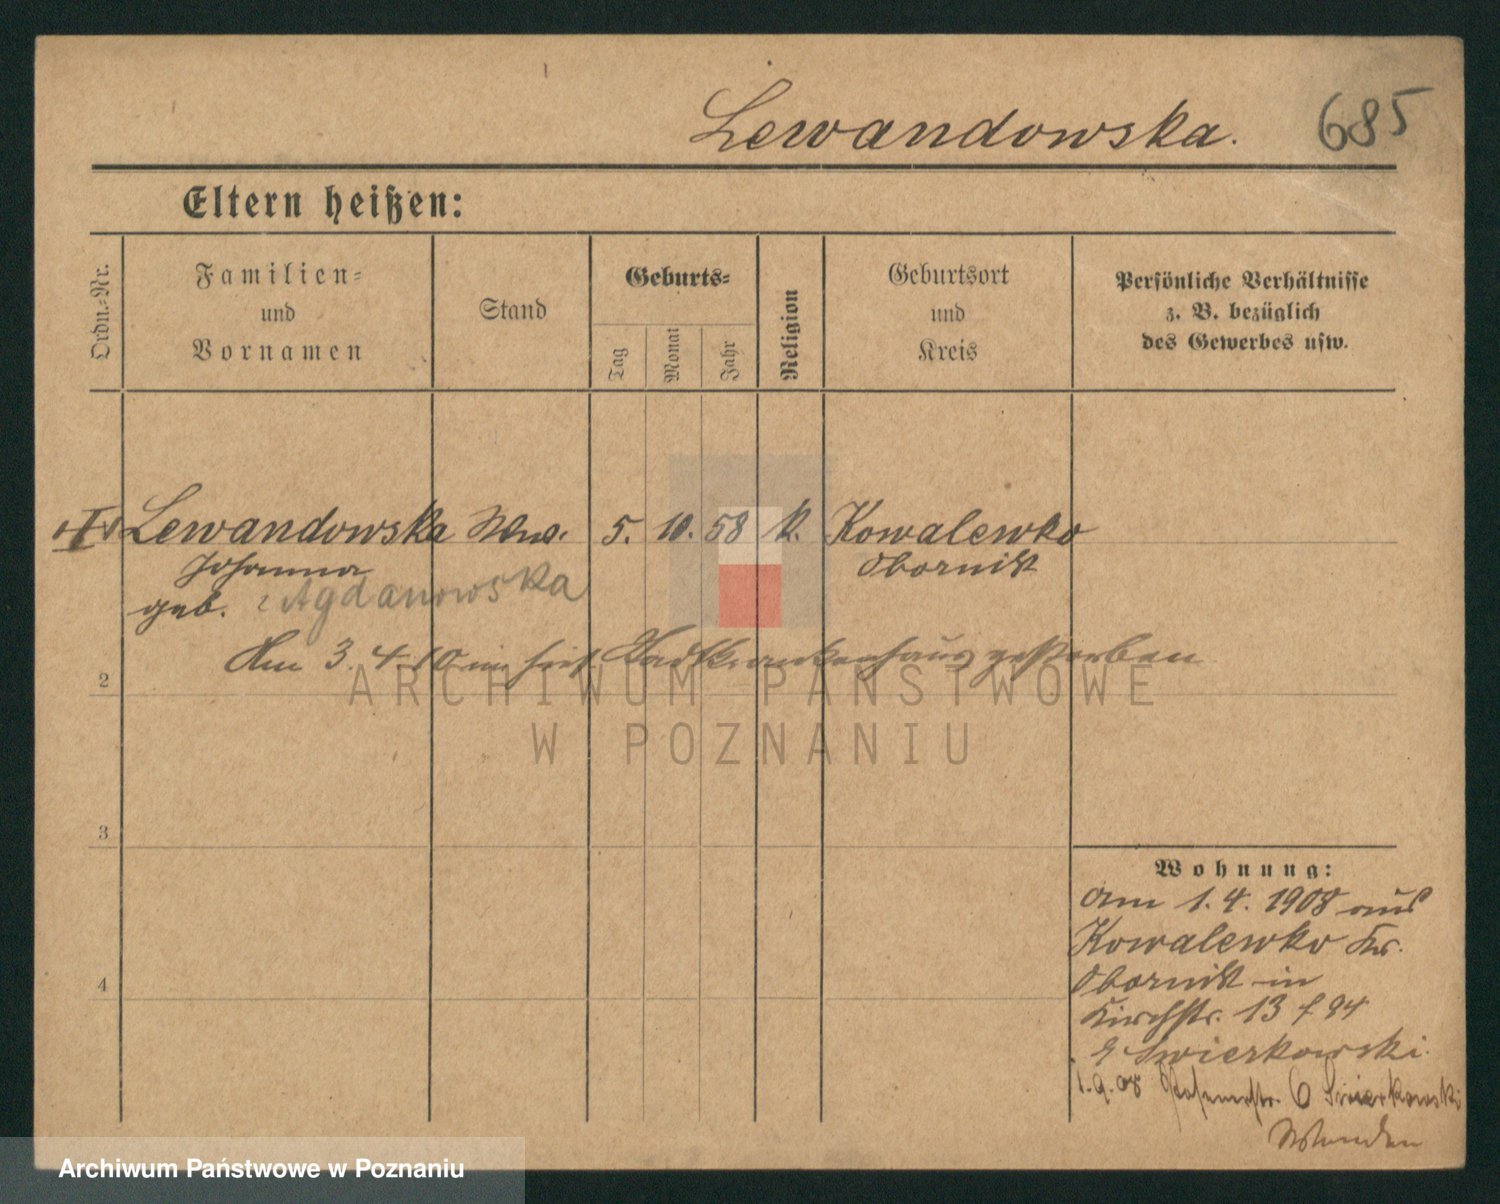 Lewandowska.
685
Eltern heißen:
Ordn.-Nr.
Familien-
und
Vornamen
Stand
Geburts-
Tag
Monat
Jahr
Religion
Geburtsort
und
Kreis
Persönliche Verhältnisse
z. B. bezüglich
des Gewerbes usw.
I Lewandowska Wwe. 5. 10. 58 k. Kowalewko
Johanna Obornik
geb.
Am 3. 4. 10 im Stadtkrankenhaus gestorben
2
ARCHIWUM PAŃSTWOWE
W POZNANIU
3
4
Wohnung:
am 1. 4. 1908 aus
Kowalewko Kr.
Obornik in
Kirchstr. 13
Swierkowski.
1.9.08 6 Swierkowski
Archiwum Państwowe w Poznaniu